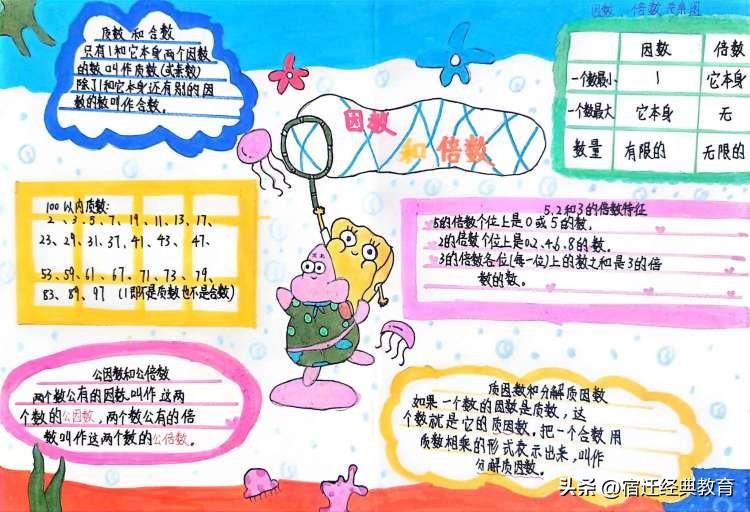 因数、倍数关系图
质数 和 合数
只有1和它本身两个因数
的数叫作质数(或素数)
除了1和它本身还有别的因
数的数叫作合数。
因数
和 倍数
因数 倍数
一个数最小 1 它本身
一个数最大 它本身 无
数量 有限的 无限的
100以内质数:
2、3、5、7、19、11、13、17、
23、29、31、37、41、43、47、
53、59、61、67、71、73、79、
83、89、97 (1即不是质数也不是合数)
5,2和3的倍数特征
5的倍数个位上是0或5的数。
2的倍数个位上是0.2.4.6.8的数。
3的倍数各位(每一位)上的数之和是3的倍
数的数。
公因数和公倍数
两个数公有的因数叫作这两
个数的公因数,两个数公有的倍
数叫作这两个数的公倍数。
质因数和分解质因数
如果一个数的因数是质数,这
个数就是它的质因数。把一个合数用
质数相乘的形式表示出来,叫作
分解质因数。
头条 @宿迁经典教育